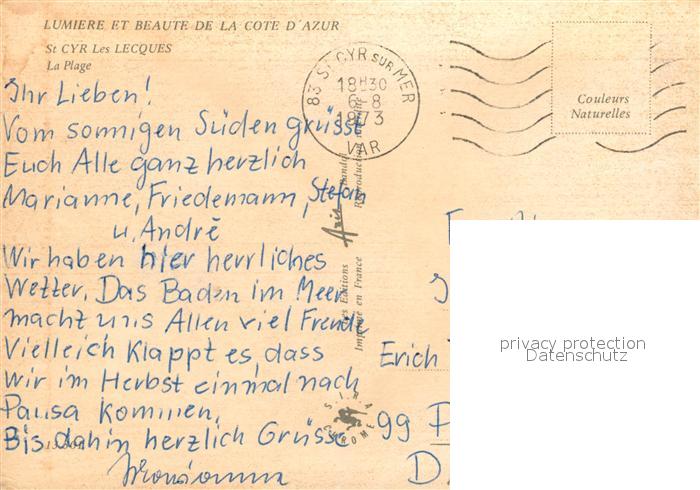 LUMIERE ET BEAUTE DE LA COTE D'AZUR
St CYR Les LECQUES
La Plage
Ihr Lieben!
Vom sonnigen Süden grüsst
Euch Alle ganz herzlich
Marianne, Friedemann, Stefan
u. André
Wir haben hier herrliches
Wetter. Das Baden im Meer
macht uns Allen viel Freude
Vielleich klappt es, dass
wir im Herbst einmal nach
Pausa kommen.
Bis dahin herzlich Grüsse
Marianne
83 ST CYR SUR MER
18H30
6-8
1973
VAR
Couleurs
Naturelles
Editions
Imprimé en France
Reproduction
S.I.R.A
CHROME
Erich
99 P
D
privacy protection
Datenschutz